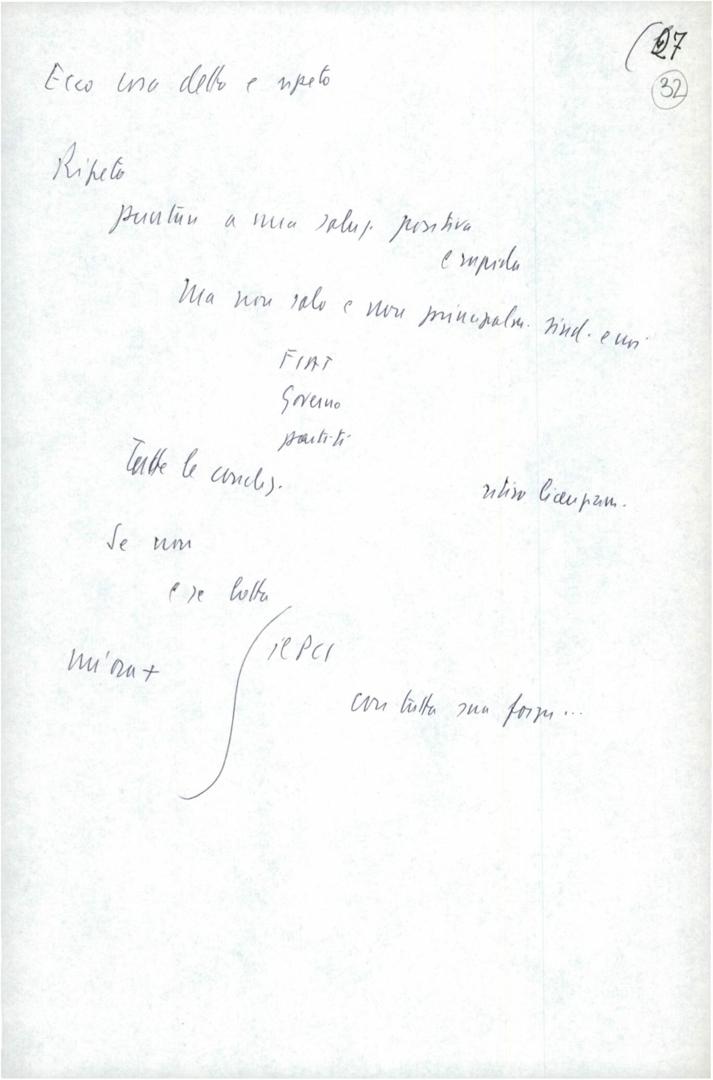 27
32
Ecco cosa detto e ripeto
Ripeto
puntare a una soluz. positiva
e rapida
Ma non solo e non principalm. sind. e noi
FIAT
Governo
partiti
Tutte le concles.
ritiro licenziam.
Se non
e se lotta
il PCI
con tutta sua forza...